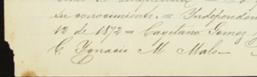 su conocimiento. = Independen
12 de 1872 = Cayetano Gomez
C. Ygnacio M. Malo =